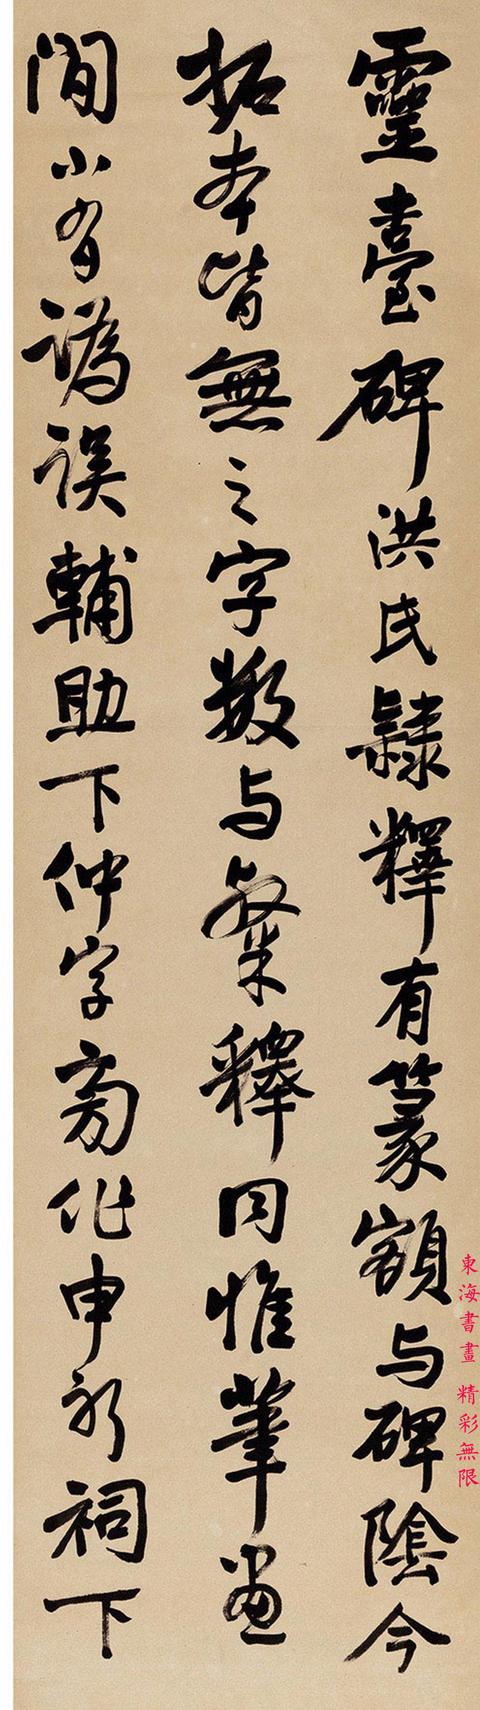 靈臺碑洪氏隸釋有篆額与碑陰今
拓本皆無之字數与隸釋同惟筆畫
間小有譌誤輔助下仲字旁作申初祠下
東海書畫 精彩無限